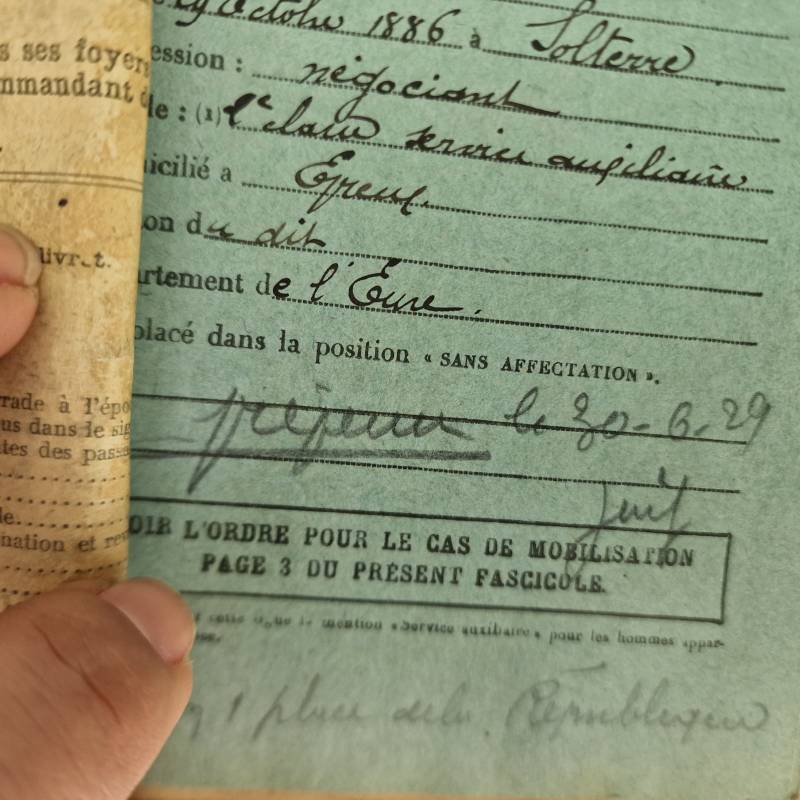 s ses foyer
mmandant d
livret.
rade à l'épo
us dans le sig
tes des passa
le
nation et re
19 Octobre 1886 à Solterre
ession : négociant
le : (1) l'classe service auxiliaire
icilié a Evreux
on du dit
rtement de l'Eure.
placé dans la position « SANS AFFECTATION ».
le 30-6-29
OIR L'ORDRE POUR LE CAS DE MOBILISATION
PAGE 3 DU PRÉSENT FASCICULE.
la mention « Service auxiliaire » pour les hommes appar-
1 place de la République